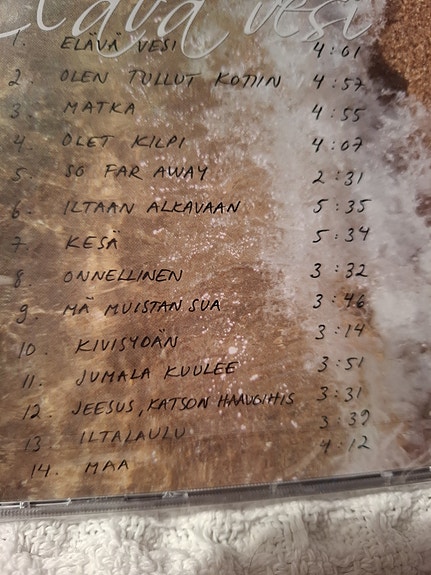 Elävä vesi
1. ELÄVÄ VESI 4:01
2. OLEN TULLUT KOTIIN 4:57
3. MATKA 4:55
4. OLET KILPI 4:07
5. SO FAR AWAY 2:31
6. ILTAAN ALKAVAAN 5:35
7. KESÄ 5:34
8. ONNELLINEN 3:32
9. MÄ MUISTAN SUA 3:46
10. KIVISYDÄN 3:14
11. JUMALA KUULEE 3:51
12. JEESUS, KATSON HAAVOIHIS 3:31
13 ILTALAULU 3:39
14. MAA 4:12